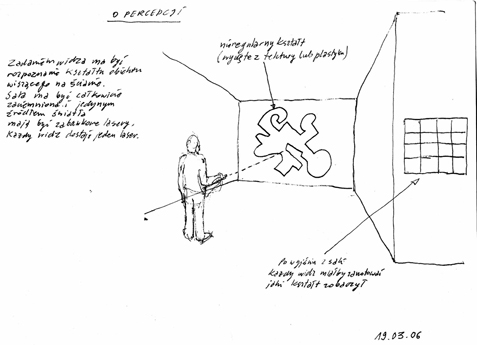 O PERCEPCJI
Zadaniem widza ma być
rozpoznanie kształtu obiektu
wiszącego na ścianie.
Sala ma być całkowicie
zaciemniona i jedynym
źródłem światła
mają być zabawkowe lasery.
Każdy widz dostaje jeden laser.
nieregularny kształt
(wycięte z tektury lub plastyku)
Po wyjściu z sali
każdy widz miałby zanotować
jaki kształt zobaczył
19.03.06